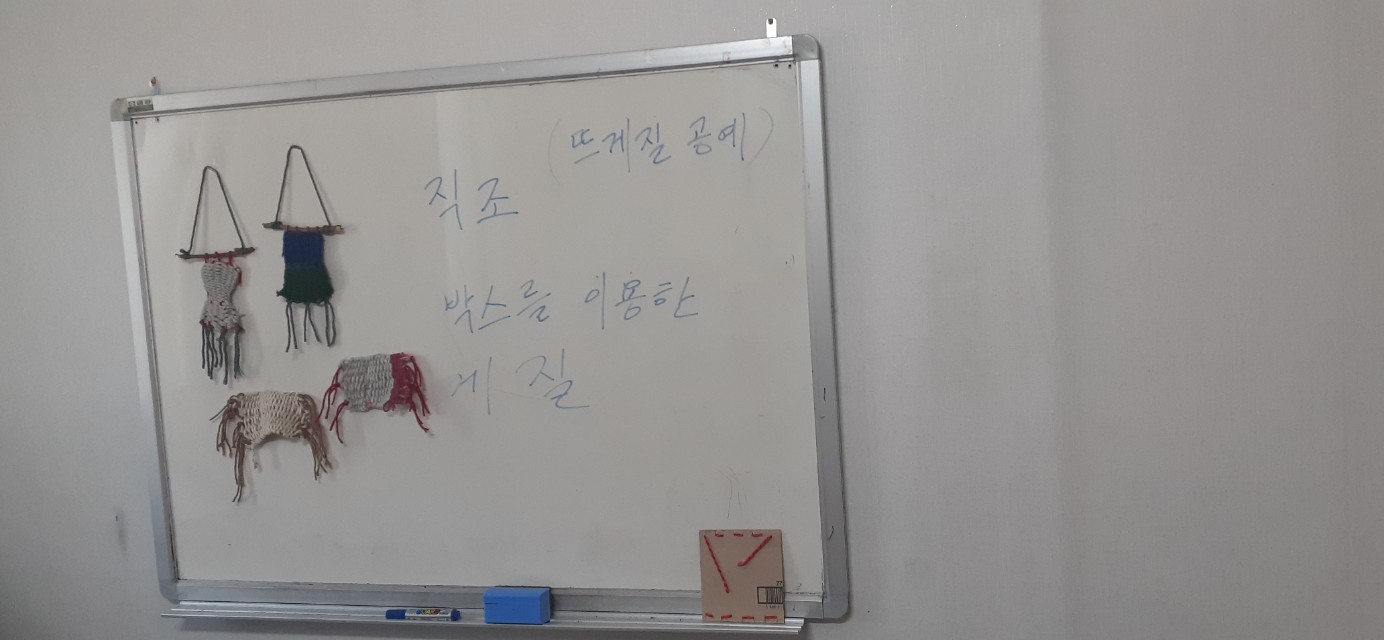 (뜨게질 공예)
직조
박스를 이용한
게 질